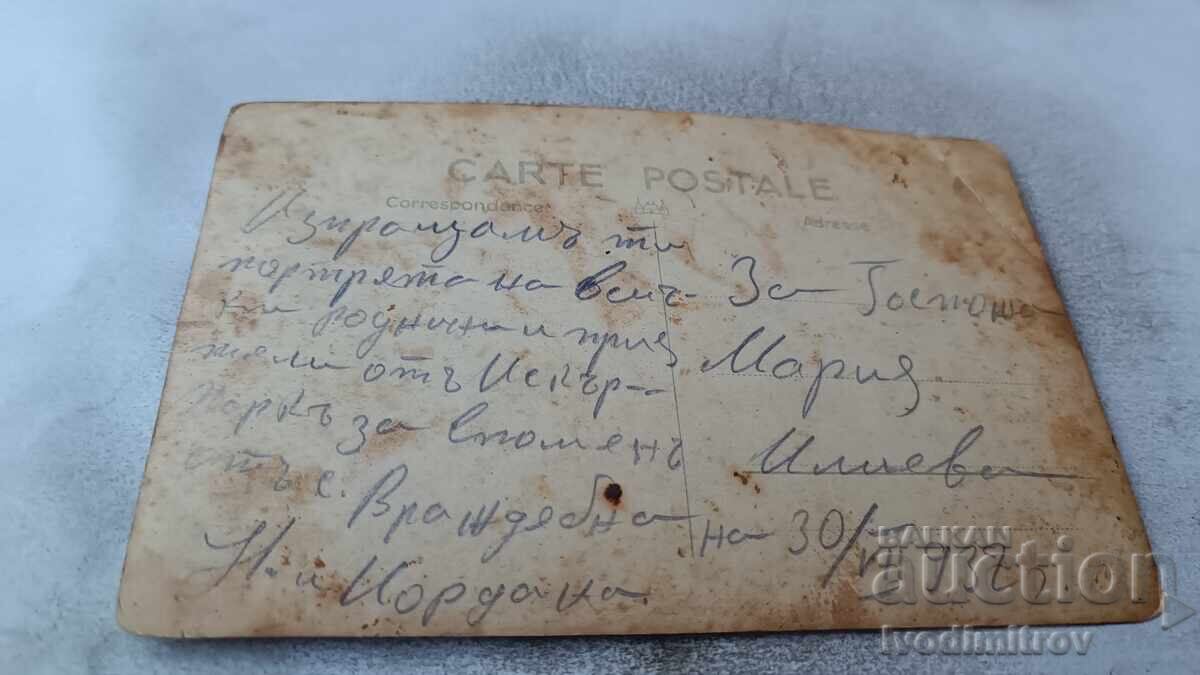 CARTE POSTALE
Correspondance
Adresse
Изпращамъ ти
портрята на всич-
ки роднини и прия
тели отъ Искър-
паркъ за споменъ
отъ с. Враждебна
Н. и Йордана.
За Госпожа
Мария
Илиева
на 30/VI 937 г.
BALKAN
auction
ivodimitrov